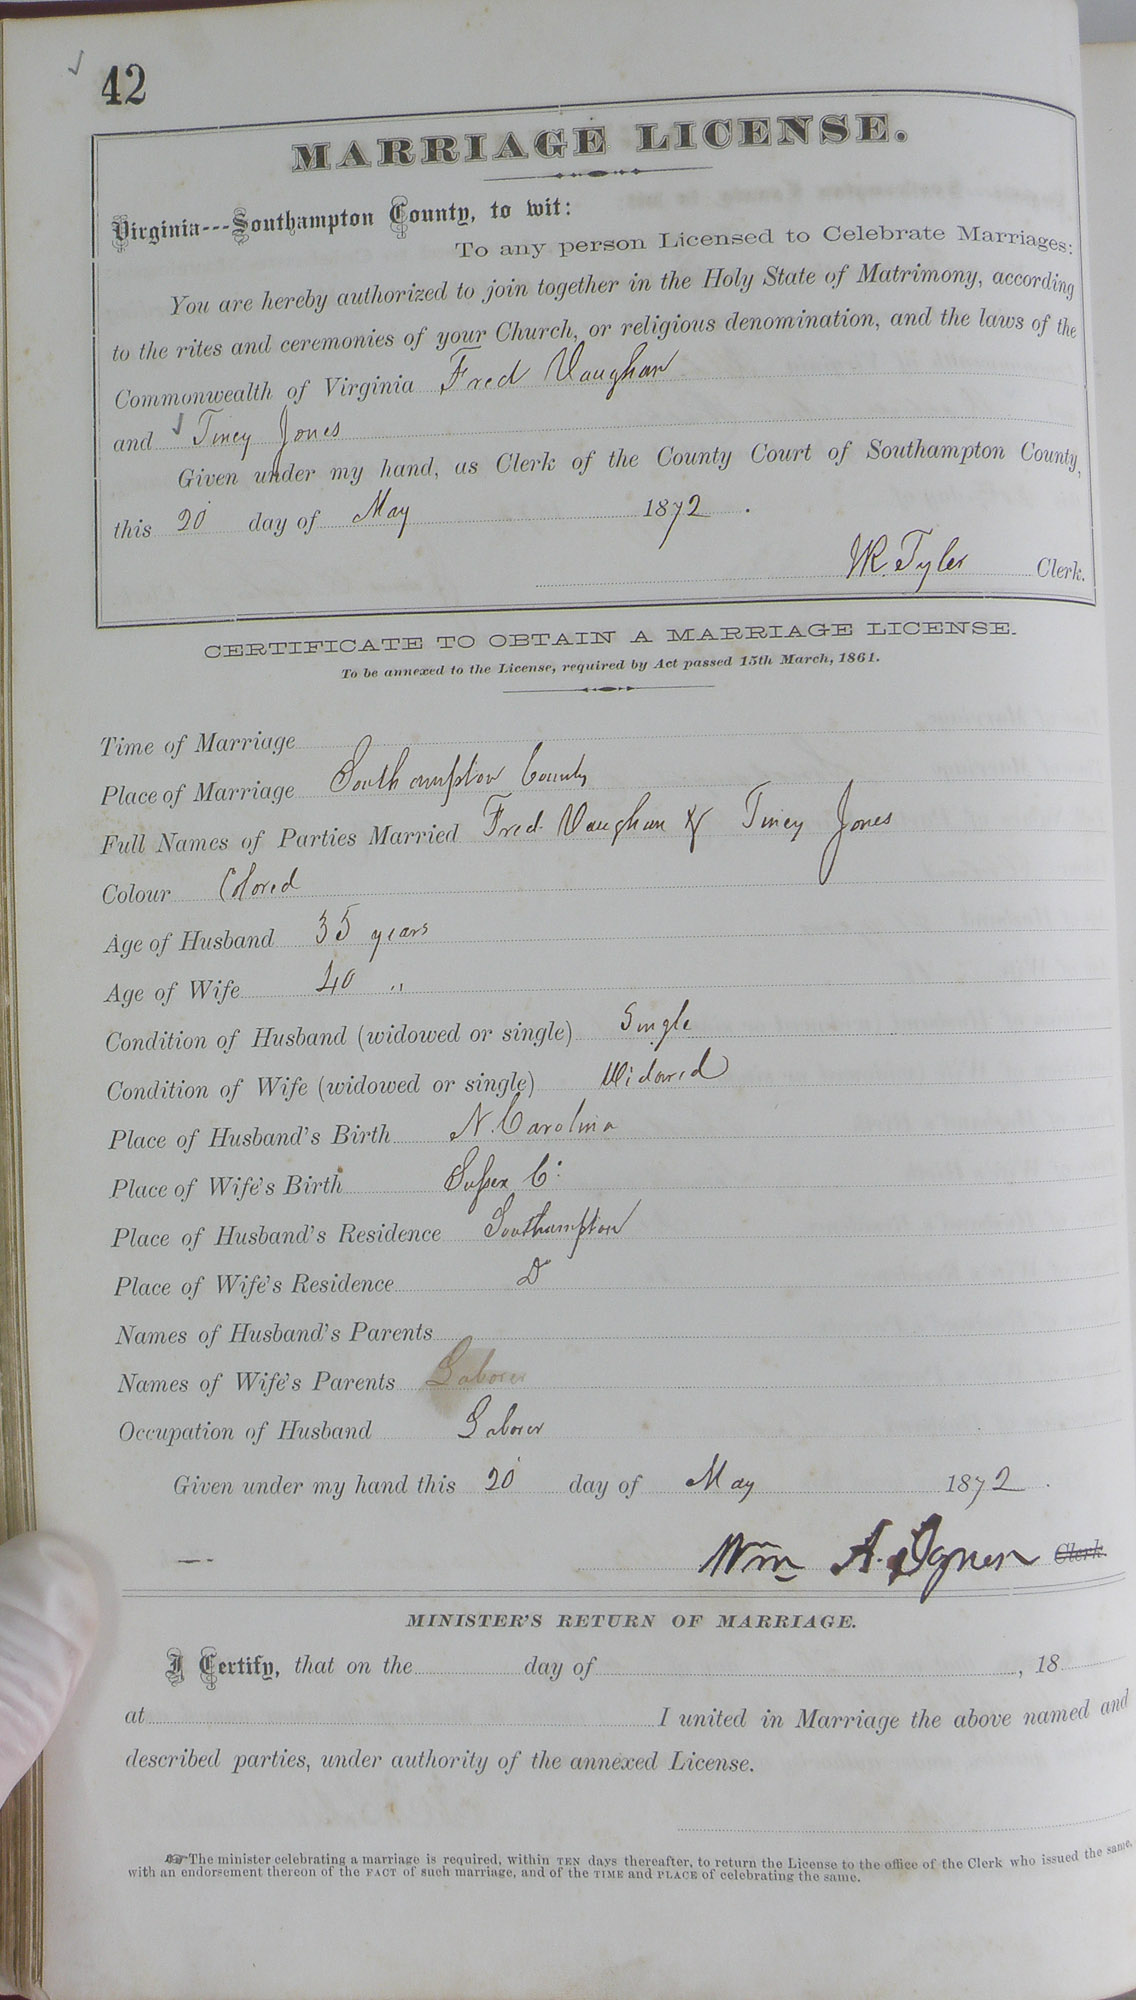 42
MARRIAGE LICENSE.
Virginia---Southampton County, to wit:
To any person Licensed to Celebrate Marriages:
You are hereby authorized to join together in the Holy State of Matrimony, according
to the rites and ceremonies of your Church, or religious denomination, and the laws of the
Commonwealth of Virginia Fred Vaughan
and Tiney Jones
Given under my hand, as Clerk of the County Court of Southampton County,
this 20 day of May 1872.
W.R. Tyler Clerk.
CERTIFICATE TO OBTAIN A MARRIAGE LICENSE.
To be annexed to the License, required by Act passed 15th March, 1861.
Time of Marriage
Place of Marriage Southampton County
Full Names of Parties Married Fred Vaughan & Tiney Jones
Colour Colored
Age of Husband 35 years
Age of Wife 40 "
Condition of Husband (widowed or single) Single
Condition of Wife (widowed or single) Widowed
Place of Husband's Birth N. Carolina
Place of Wife's Birth Sussex Co
Place of Husband's Residence Southampton
Place of Wife's Residence Do
Names of Husband's Parents
Names of Wife's Parents Laborer
Occupation of Husband Laborer
Given under my hand this 20 day of May 1872.
Wm A. Clerk.
MINISTER'S RETURN OF MARRIAGE.
I Certify, that on the day of , 18
at I united in Marriage the above named and
described parties, under authority of the annexed License.
☞The minister celebrating a marriage is required, within TEN days thereafter, to return the License to the office of the Clerk who issued the same,
with an endorsement thereon of the FACT of such marriage, and of the TIME and PLACE of celebrating the same.